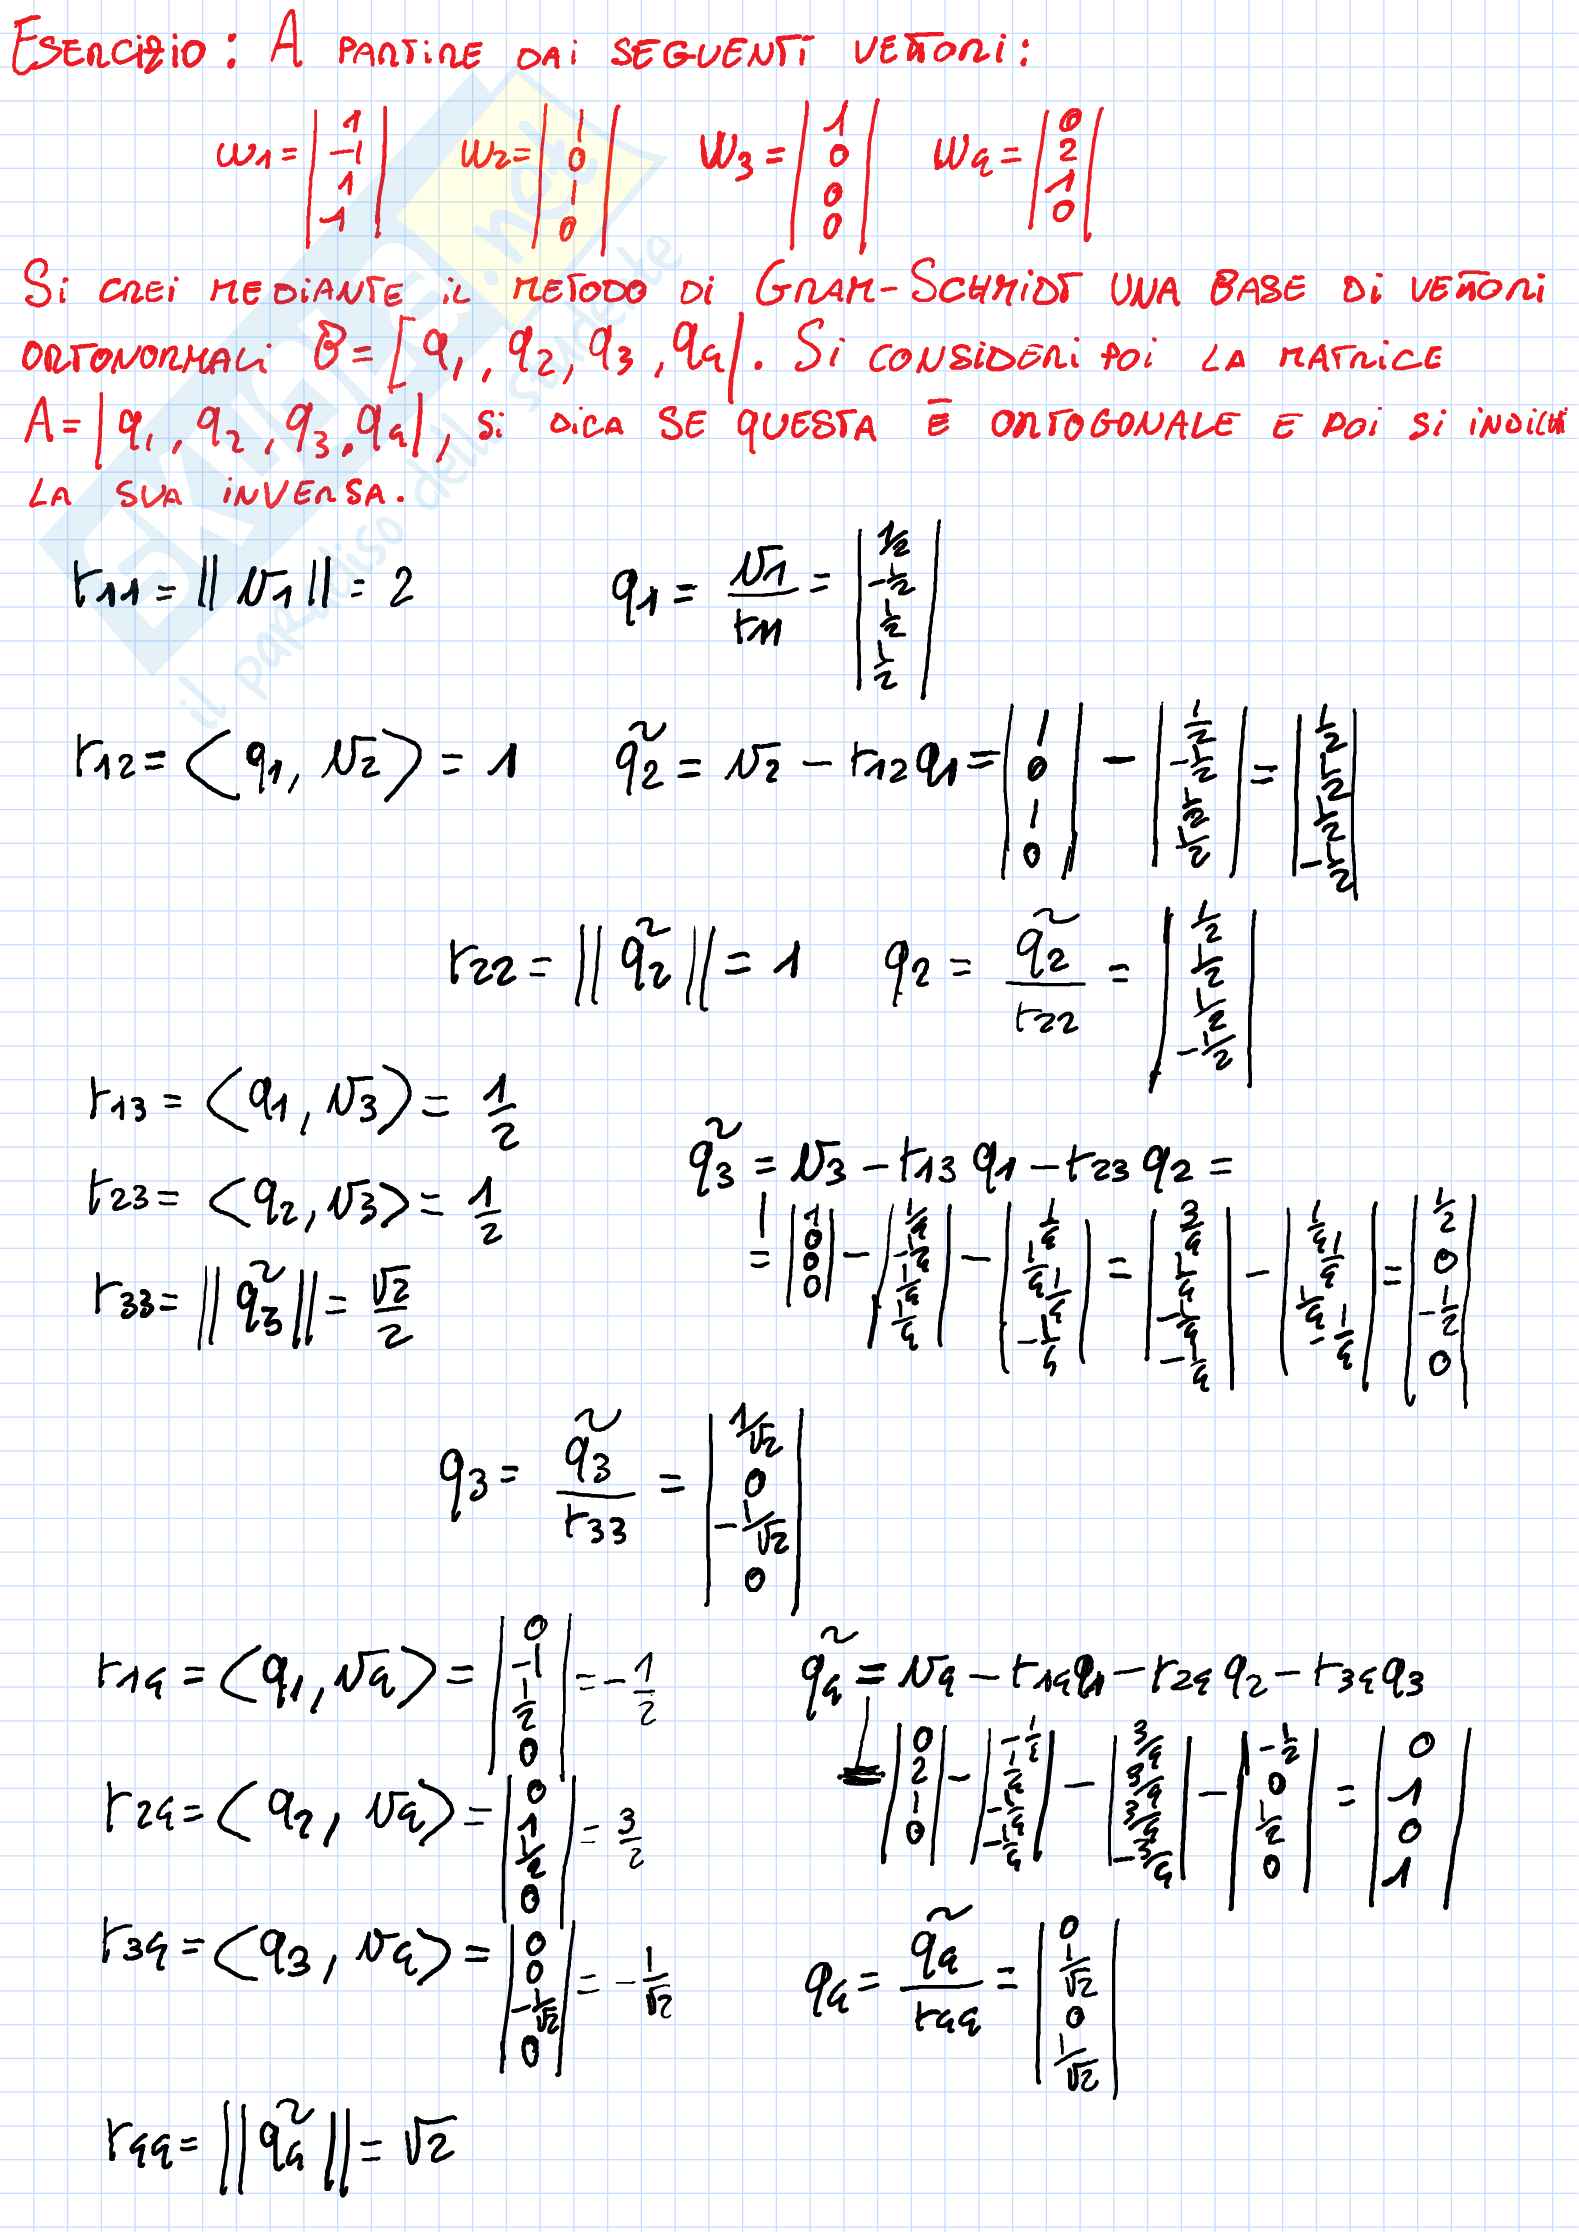 Esercizio: A partire dai seguenti vettori:
w1 = |1 -1 1 1| w2 = |1 0 1 0| w3 = |1 0 0 0| w4 = |0 2 1 0|
Si crei mediante il metodo di Gram-Schmidt una base di vettori
ortonormali B = [q1, q2, q3, q4]. Si consideri poi la matrice
A = |q1, q2, q3, q4|, si dica se questa è ortogonale e poi si indichi
la sua inversa.
r11 = ||v1|| = 2 q1 = v1/r11 = |1/2 -1/2 1/2 1/2|
r12 = <q1, v2> = 1 q̃2 = v2 - r12 q1 = |1 0 1 0| - |1/2 -1/2 1/2 1/2| = |1/2 1/2 1/2 -1/2|
r22 = ||q̃2|| = 1 q2 = q̃2/r22 = |1/2 1/2 1/2 -1/2|
r13 = <q1, v3> = 1/2
q̃3 = v3 - r13 q1 - r23 q2 =
r23 = <q2, v3> = 1/2
= |1 0 0 0| - |1/4 -1/4 1/4 1/4| - |1/4 1/4 1/4 -1/4| = |3/4 1/4 -1/4 -1/4| - |1/4 1/4 1/4 -1/4| = |1/2 0 -1/2 0|
r33 = ||q̃3|| = √2/2
q3 = q̃3/r33 = |1/√2 0 -1/√2 0|
r14 = <q1, v4> = |0 -1 1/2 0| = -1/2 q̃4 = v4 - r14 q1 - r24 q2 - r34 q3
= |0 2 1 0| - |-1/4 1/4 -1/4 -1/4| - |3/4 3/4 3/4 -3/4| - |-1/2 0 1/2 0| = |0 1 0 1|
r24 = <q2, v4> = |0 1 1/2 0| = 3/2
r34 = <q3, v4> = |0 0 -1/√2 0| = -1/√2 q4 = q̃4/r44 = |0 1/√2 0 1/√2|
r44 = ||q̃4|| = √2
SKUOLA.net
il paradiso dello studente